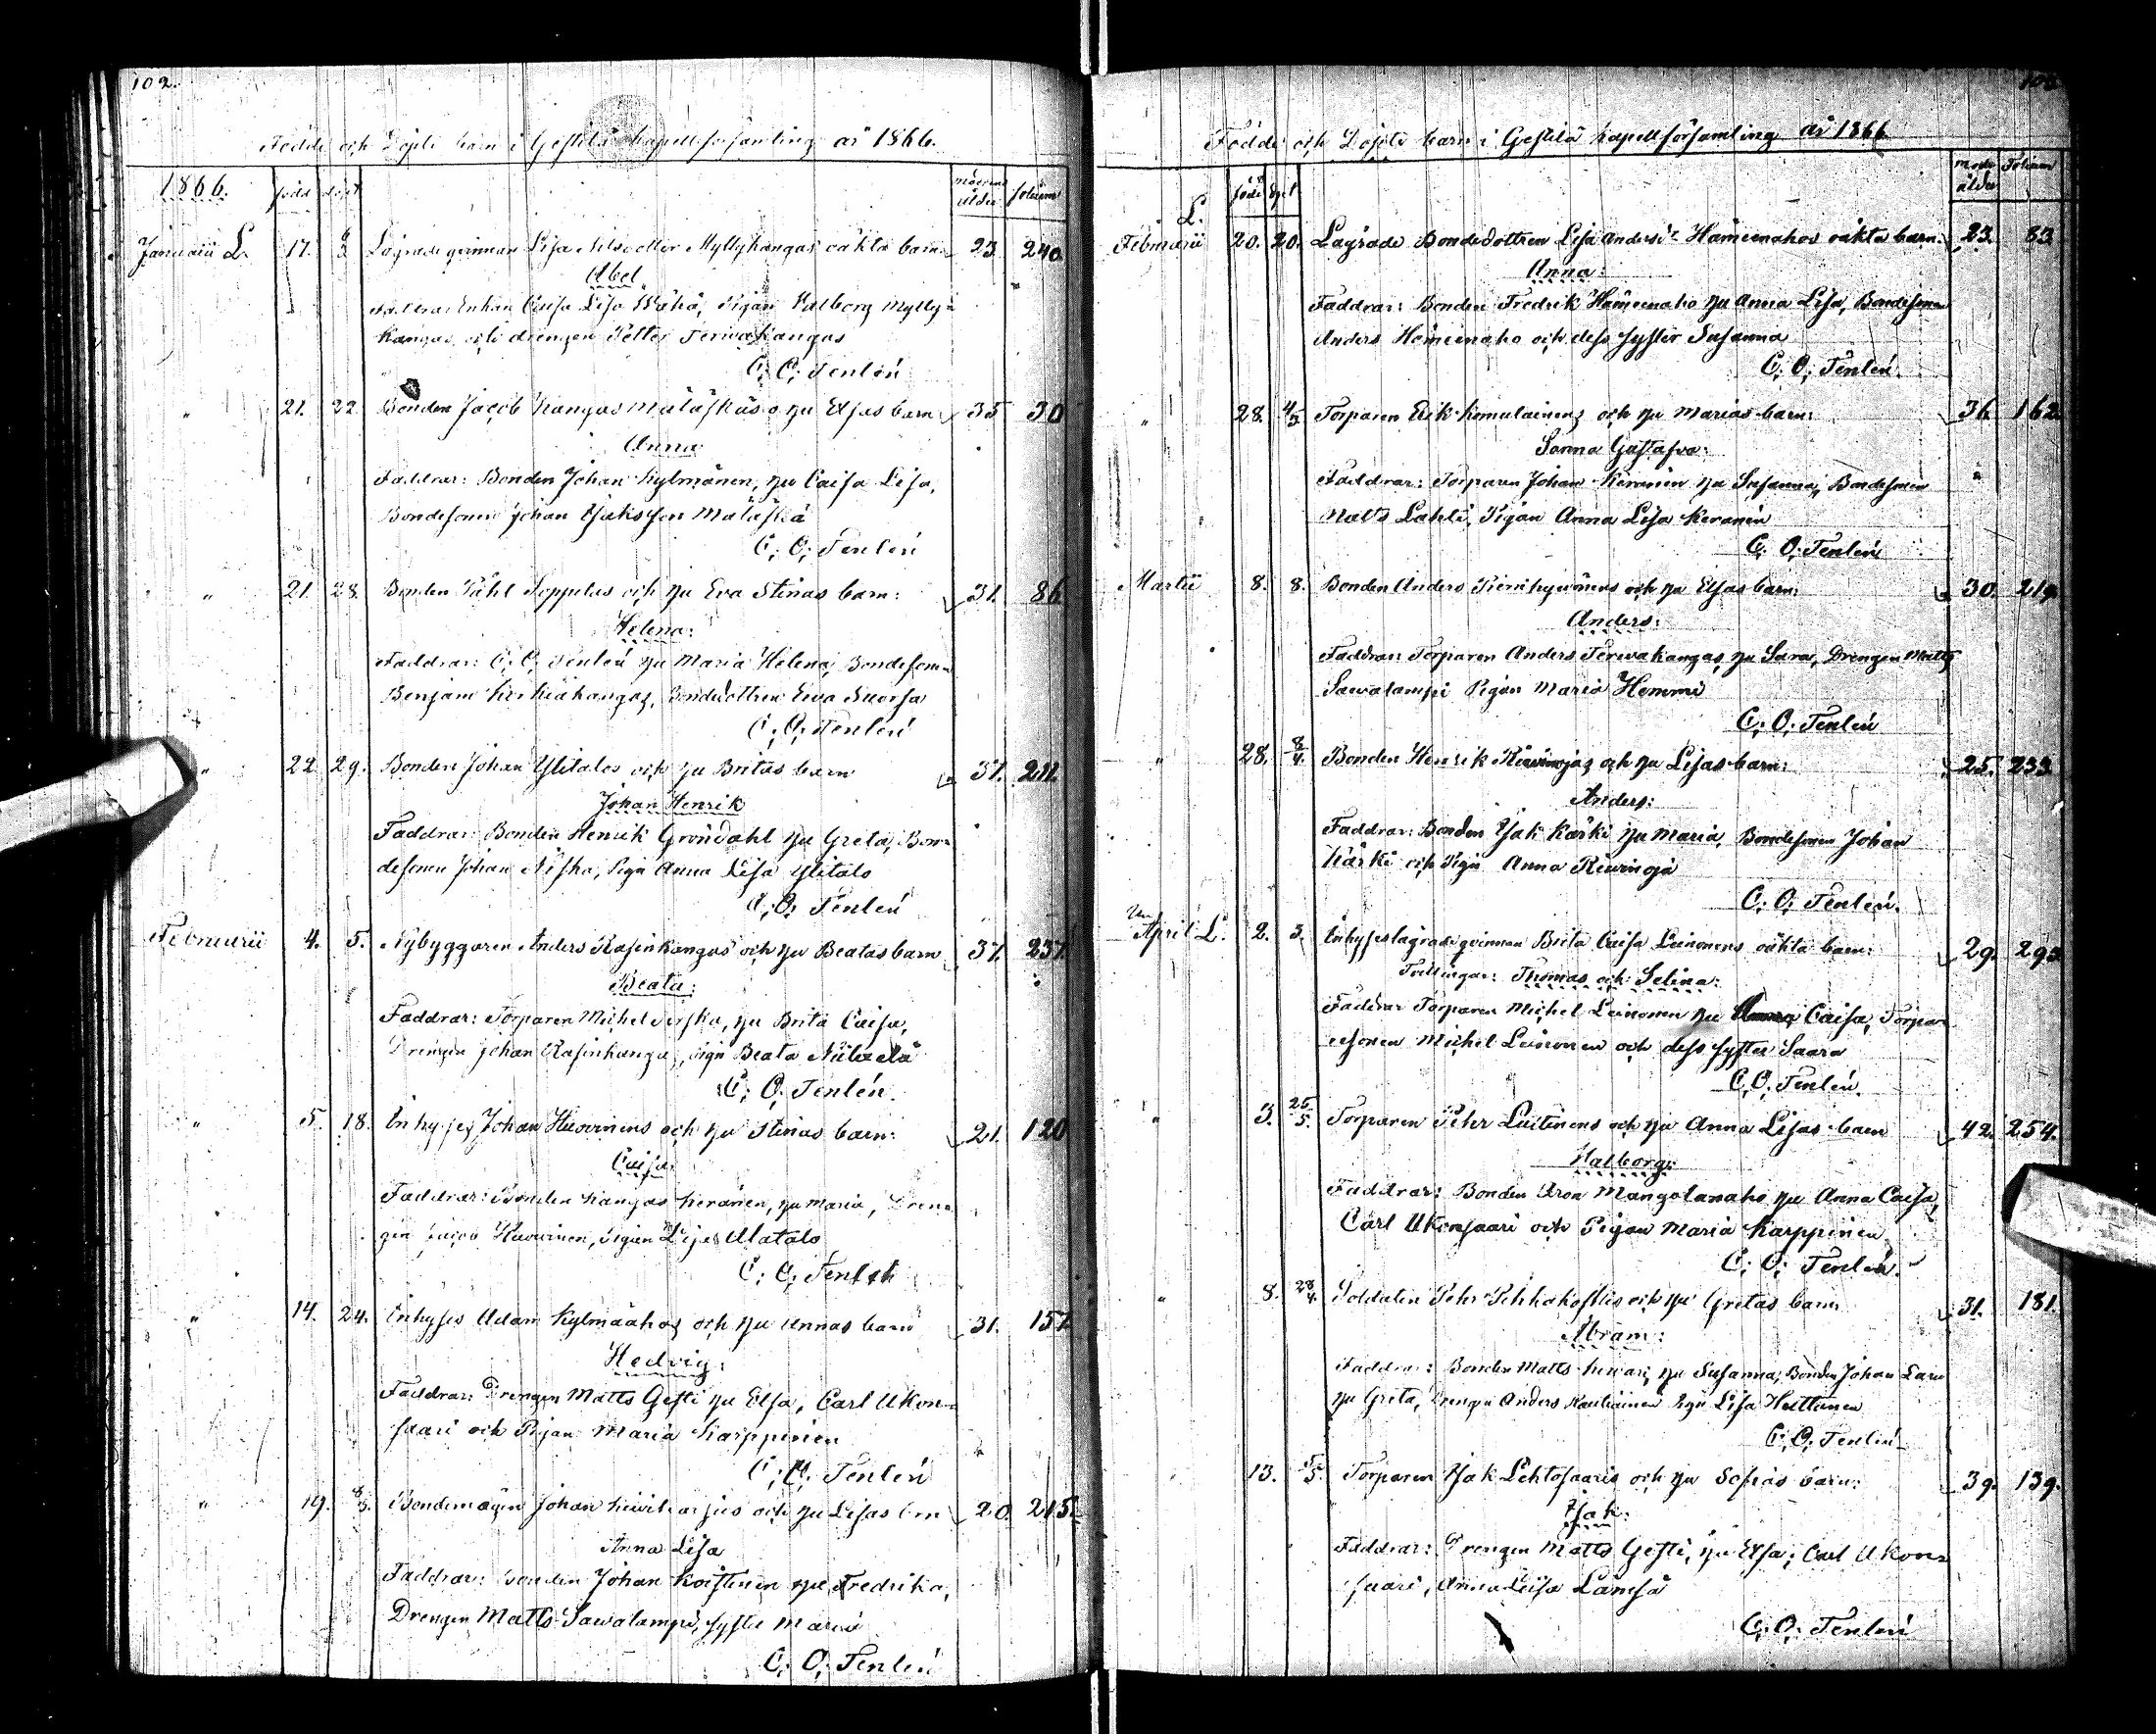 102.
Födde och Döpte barn i Gestilä Kapellförsamling år 1866.
1866. född döpt moderns ålder folium
Januarii L. 17. Lägrade qvinnan Lisa Nilsdotter Myllykangas oäkta barn: 23. 240.
Abel
Faddrar: Enkan Caisa Lisa Wähä, Pigan Walborg Mylly=
kangas och drengen Petter Terwakangas
C; O; Tenlén
" 21. 22. Bonden Jacob Kangas Mäläskäs o hu Elsas barn: 35 30
Anna
Faddrar: Bonden Johan Kylmänen, hu Caisa Lisa,
Bondesonen Johan Isaksson Mäläskä
C; O; Tenlén
" 21. 28. Bonden Påhl Seppälas och hu Eva Stinas barn: 31. 86
Helena:
Faddrar: C; O; Tenlén hu Maria Helena, Bondesonen
Benjam Kerkiäkangas, Bondedottren Ewa Suorsa
C; O; Tenlén
" 22. 29. Bonden Johan Ylitalos och hu Britas barn 37. 211.
Johan Henrik
Faddrar: Bonden Henrik Gröndahl hu Greta, Bon=
desonen Johan Niska, Pign Anna Lisa Ylitalo
C; O; Tenlén
Februarii 4. 5. Nybyggaren Anders Rasinkangas och hu Beatas barn 37. 237.
Beata:
Faddrar: Torparen Michel, hu Brita Caisa,
Drengen Johan Rasinkangas, Pign Beata
C; O; Tenlén.
" 5. 18. Inhyses Johan Huovinens och hu Stinas barn: 21. 120
Caisa
Faddrar: Bonden Kangas Keränen, hu Maria, Dren=
gen Jacob Huovinen, Pigan Lisa Alatalo
C; O; Tenlén
" 14. 24. Inhyses Adam Kylmäahos och hu Annas barn 31. 157.
Hedvig:
Faddrar: Drengen Matts Gesti hu Elsa, Carl Ukon=
saari och Pigan Maria Karppinen
C; O; Tenlén
" 19. 8/3. Bondemågen Johan Kiviharjus och hu Lisas brn 20. 215.
Anna Lisa
Faddrar: Bonden Johan Koistinen hu Fredrika,
Drengen Matts Sawalampi, syster Maria
C; O; Tenlén
Födde och Döpte barn i Gestilä Kapellförsamling år 1866.
född döpt ålder Folium
L.
Februarii 20. 20. Lägrade Bondedottren Lisa Andersdr Hämeenahos oäkta barn: 23. 83.
Anna:
Faddrar: Bonden Fredrik Hämeenaho hu Anna Lisa, Bondesonen
Anders Hämeenaho och dess syster Susanna
C; O; Tenlén.
" 28. 4/3. Torparen Erik Komulainens och hu Marias barn: 36. 162.
Sanna Gustafva:
Faddrar: Torparen Johan Keränen hu Susanna, Bondesonen
Matts Lahti, Pigan Anna Lisa Keränen
C; O; Tenlén
Martii 8. 8. Bonden Anders och hu Elsas barn: 30. 219.
Anders:
Faddrar: Torparen Anders Terwakangas, hu Sara, Drengen Matts
Sawalampi Pigan Maria Hemmi
C; O; Tenlén
" 28. 8/4. Bonden Henrik Riävinojas och hu Lisas barn: 25. 233.
Anders:
Faddrar: Bonden Isak Karki hu Maria, Bondesonen Johan
Kärki och Pign Anna Riewinoja
C; O; Tenlén.
April L. 2. 3. Inhyses lägrade qvinnan Brita Caisa Leinonens oäkta barn: 29. 293
Tvillingar: Thomas och Selina:
Faddrar Torparen Michel Leinonen hu Caisa, Torpar
esonen Michel Leinonen och dess syster Saara
C; O; Tenlén.
" 3. 25/5. Torparen Pehr Luitinens och hu Anna Lisas barn 42. 254.
Walborg:
Faddrar: Bonden Aron Mangolanaho hu Anna Caisa,
Carl Ukonsaari och Pigan Maria Karppinen
C; O; Tenlén.
" 8. 28/4. Soldaten Pehr Pihkakoskis och hu Gretas barn 31. 181.
Abram:
Faddrar: Bonden Matts, hu Susanna, Bonden Johan
hu Greta, Drengen Anders Kautiainen Pgn Lisa Huttunen
C; O; Tenlén
13. 5/5. Torparen Isak Lehtosaaris och hu Sofias barn: 39. 139.
Isak:
Faddrar: Drengen Matts Gesti, hu Elsa; Carl Ukon=
saari, Anna Caisa Lämsä
C; O; Tenlén